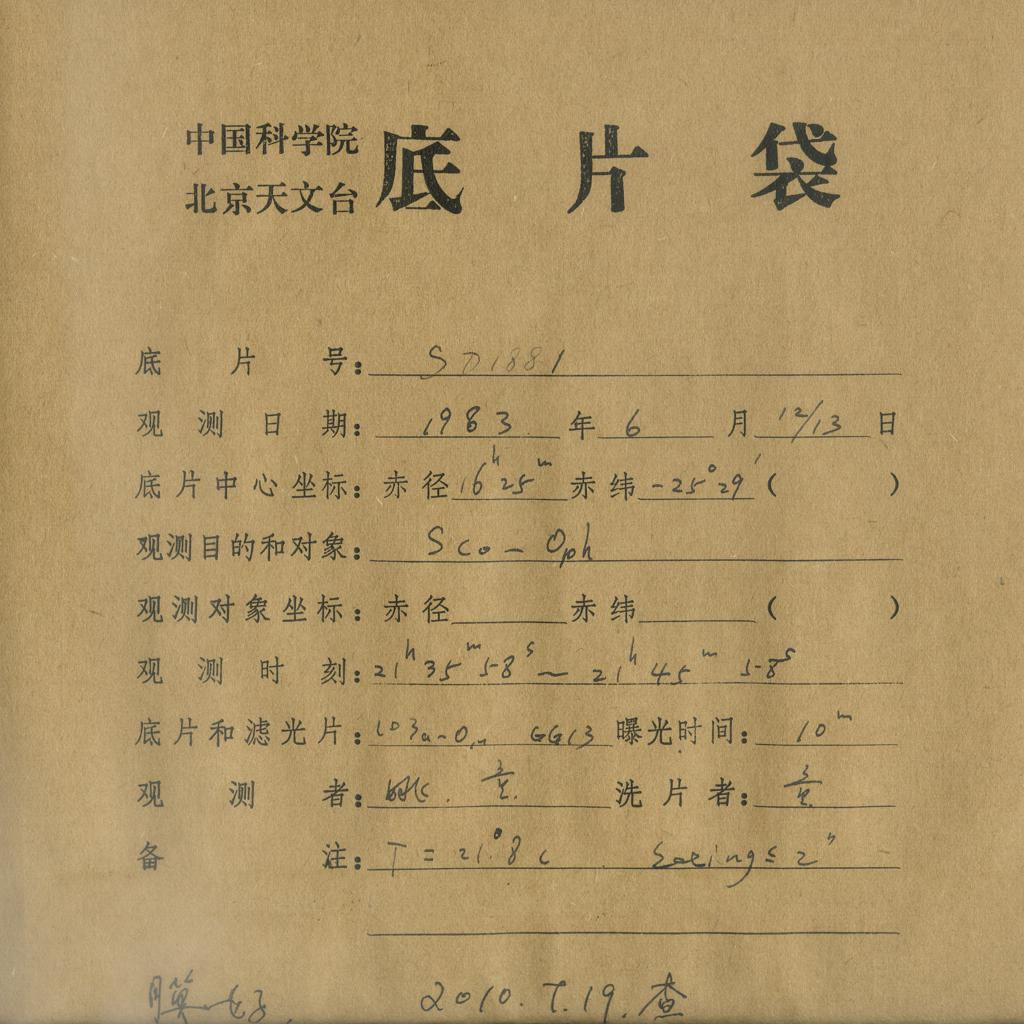 中国科学院
北京天文台 底片袋
底片号： SD1881
观测日期： 1983 年 6 月 12/13 日
底片中心坐标：赤径 16h 25m 赤纬 -25°29′ ( )
观测目的和对象： Sco - Oph
观测对象坐标：赤径 赤纬 ( )
观测时刻： 21h 35m 58s ~ 21h 45m 58s
底片和滤光片： 103a-O, GG13 曝光时间： 10m
观测者： 姚. 童 洗片者： 童
备注： T = 21.°8 C Seeing ≤ 2″
膜好. 2010.7.19. 查